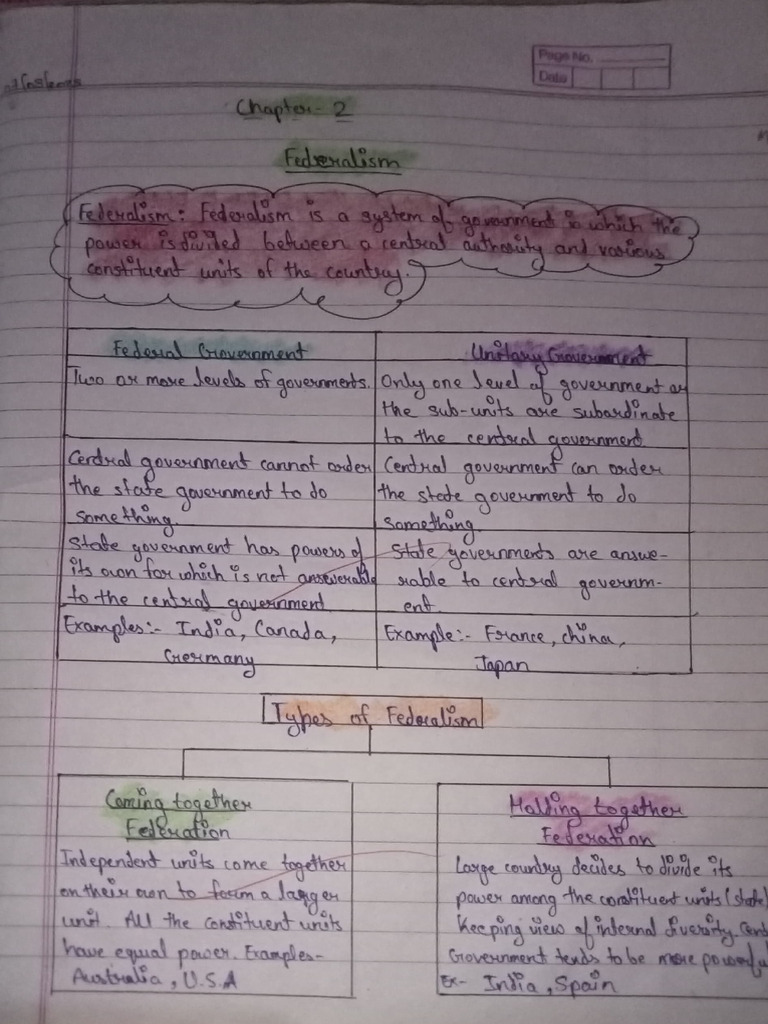 Page No.
Date
Chapter- 2
Federalism
Federalism: Federalism is a system of government in which the
power is divided between a central authority and various
constituent units of the country.
Federal Government
Unitary Government
Two or more levels of governments.
Only one level of government or
the sub-units are subordinate
to the central government
Central government cannot order
the state government to do
something.
Central government can order
the state government to do
something.
State government has powers of
its own for which is not answerable
to the central government
State governments are answe-
rable to central governm-
ent.
Examples:- India, Canada,
Germany
Example:- France, china,
Japan
Types of Federalism
Coming together
Federation
Independent units come together
on their own to form a larger
unit. All the constituent units
have equal power. Examples-
Australia, U.S.A
Holding together
Federation
Large country decides to divide its
power among the constituent units (state)
Keeping view of internal diversity.
Government tends to be more powerful
Ex- India, Spain